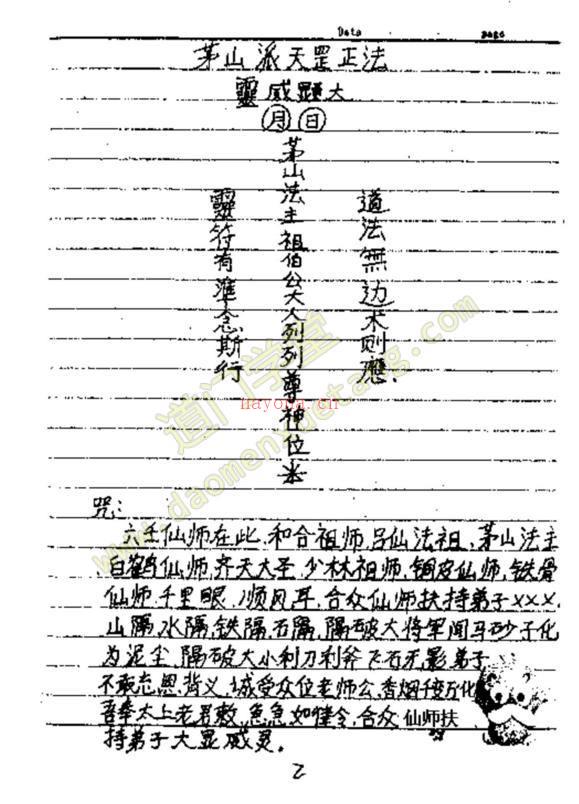 Date
page
茅山派天罡正法
靈威顯大
月日
道法無边术则應.
茅山法主祖伯公大人列列尊神位
靈符有準念斯行
道门学堂
hayona.cn
www.daomenxuetang.com
咒:
六壬仙师在此,和合祖师,吕仙法祖,茅山法主
白鹤仙师,齐天大圣,少林祖师,铜皮仙师,铁骨
仙师,千里眼,顺风耳,合众仙师扶持弟子×××.
山隔,水隔,铁隔,石隔,隔破大将军闻马砂子化
为泥尘,隔破大小利刀利斧飞石无影弟子
不敢忘恩背义,城受众位老师公,香烟千变万化
吾奉太上老君敕,急急如律令,合众仙师扶
持弟子大显威灵.
2